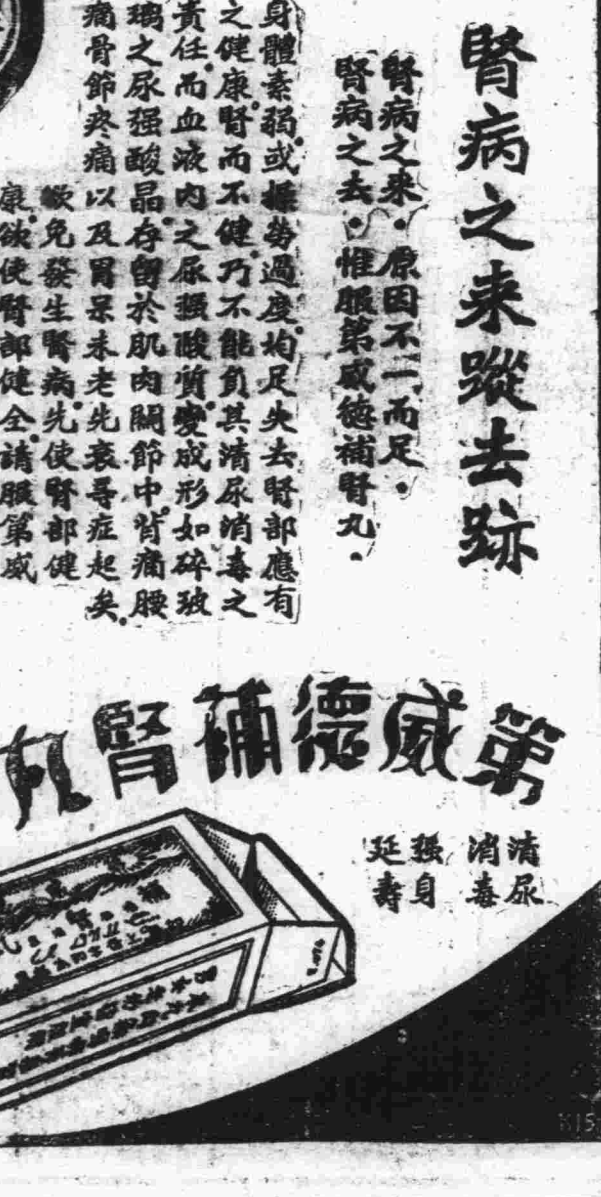 腎病之来蹤去跡
腎病之来。原因不一而足。
腎病之去。惟服第威德補腎丸。
身體素弱或操勞過度均足失去腎部應有
之健康腎而不健乃不能負其清尿消毒之
責任而血液内之尿强酸質變成形如碎玻
璃之尿强酸晶存留於肌肉關節中背痛腰
痛骨節疼痛以及胃呆未老先衰等症起矣
欲免發生腎病先使腎部健
康欲使腎部健全請服第威
第威德補腎丸
清尿
消毒
强身
延壽